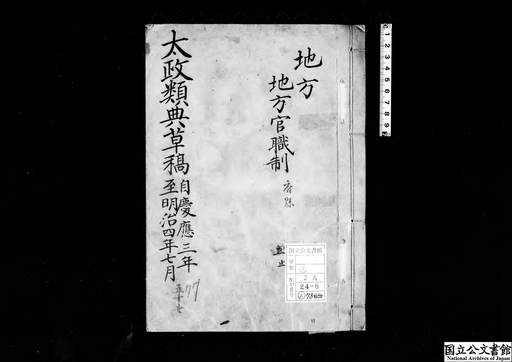 地方
地方官職制
太政類典草稿
自慶應三年
至明治四年七月
五十七
77
国立公文書館
2A
24-8
国立公文書館
National Archives of Japan
1 2 3 4 5 6 7 8 9